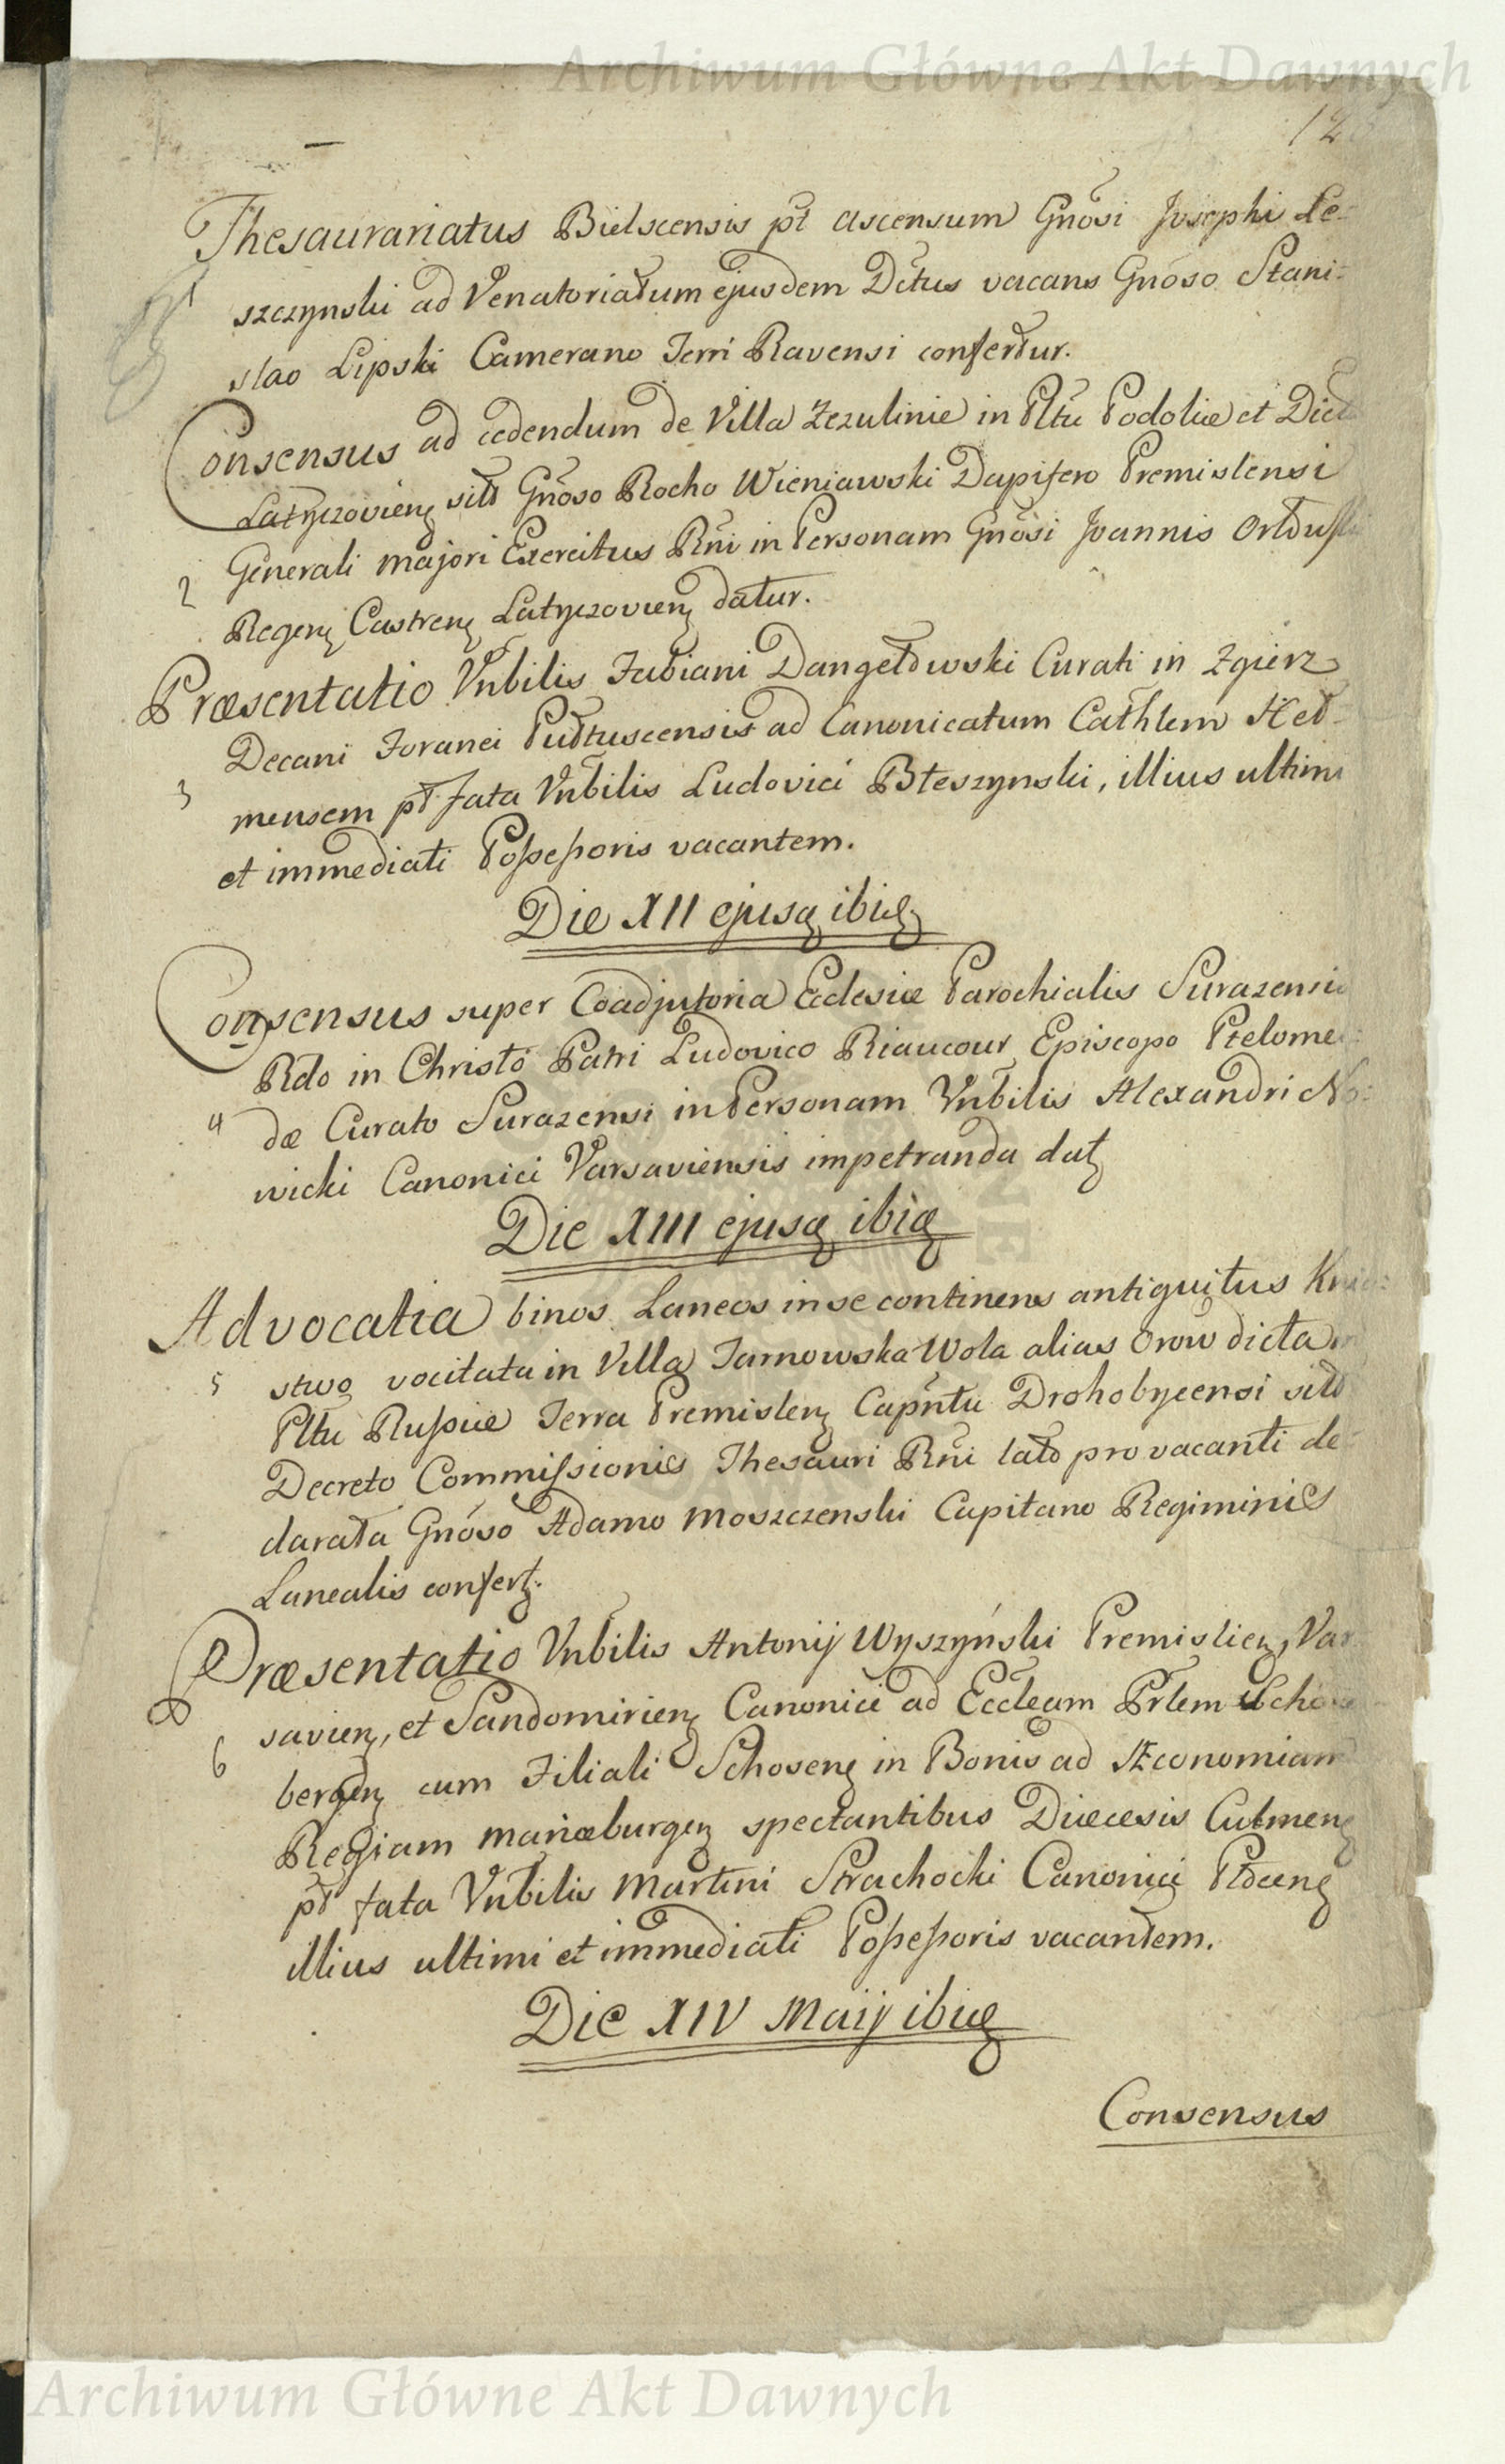 Archiwum Główne Akt Dawnych
12
Thesaurariatus Bielscensis pt ascensum Gnosi Josephi Le-
1 szczynski ad Venatoriatum ejusdem Dctus vacans Gnoso Stani-
slao Lipski Camerano Terri Ravensi confertur.
Consensus ad cedendum de Villa Zezulinie in Pltu Podoliæ et
Latyczovien sitt Gnoso Rocho Wieniawski Dapifero Premislensi
2 Generali majori Exercitus Rni in Personam Gnosi Joannis
Regen Castren Latyczovien datur.
Præsentatio Vnbilis Fabiani Dangełowski Curati in Zgierz
Decani Foranei Pułtuscensis ad Canonicatum Cathlem Heł-
3 mensem pt fata Vnbilis Ludovici Błeszynski, illius ultimi
et immediati Possessoris vacantem.
Die XII ejusq ibiq
Consensus super Coadjutoria Ecclesiæ Parochialis Surazensis
Rdo in Christo Patri Ludovico Riaucour Episcopo Ptelome-
4 dæ Curato Surazensi in Personam Vnbilis Alexandri No-
wicki Canonici Varsaviensis impetranda dat
Die XIII ejusq ibiq
Advocatia binos Laneos in se continens antiquitus Knia-
5 stwo vocitata in Villa Tarnowska Wola alias Orow dicta in
Pltu Russiæ Terra Premislen Capntu Drohobycensi sitt
Decreto Commissionis Thesauri Rni lato pro vacanti de-
clarata Gnoso Adamo Moszczenski Capitano Regiminis
Lanealis confert.
Præsentatio Vnbilis Antonij Wyszyński Premislien, Var-
savien, et Sandomirien Canonici ad Eccleam Prlem
6 bergen cum Filiali Schosen in Bonis ad Æconomiam
Regiam Mariæburgen spectantibus Diæcesis Culmen
pt fata Vnbilis Martini Strachocki Canonici
illius ultimi et immediati Possessoris vacantem.
Die XIV Maij ibiq
Consensus
Archiwum Główne Akt Dawnych